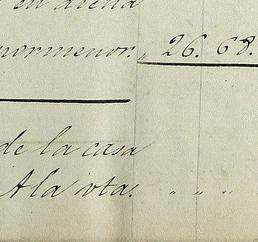 en dicha
pormenor. „ 26. 68.
de la casa
A la vta. „ „ „ „